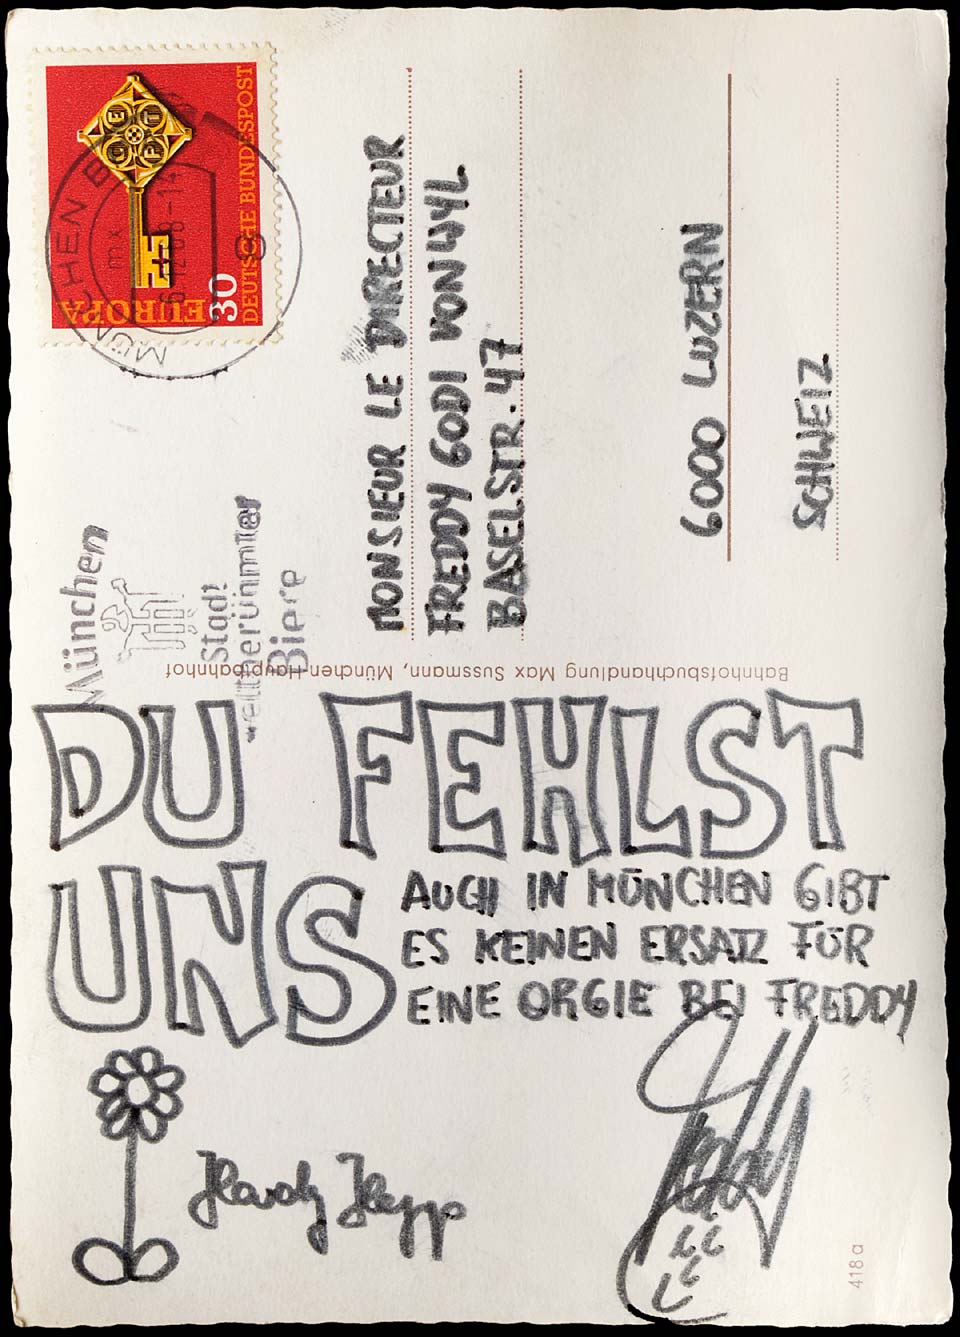 EUROPA
30
DEUTSCHE BUNDESPOST
MÜNCHEN
München
Stadt
weltberühmter
Biere
MONSIEUR LE DIRECTEUR
FREDDY GODI VON WYL
BASELSTR. 47
6000 LUZERN
SCHWEIZ
Bahnhofsbuchhandlung Max Sussmann, München-Hauptbahnhof
DU FEHLST
UNS
AUCH IN MÜNCHEN GIBT
ES KEINEN ERSATZ FÜR
EINE ORGIE BEI FREDDY
Hardy Hepp
418a